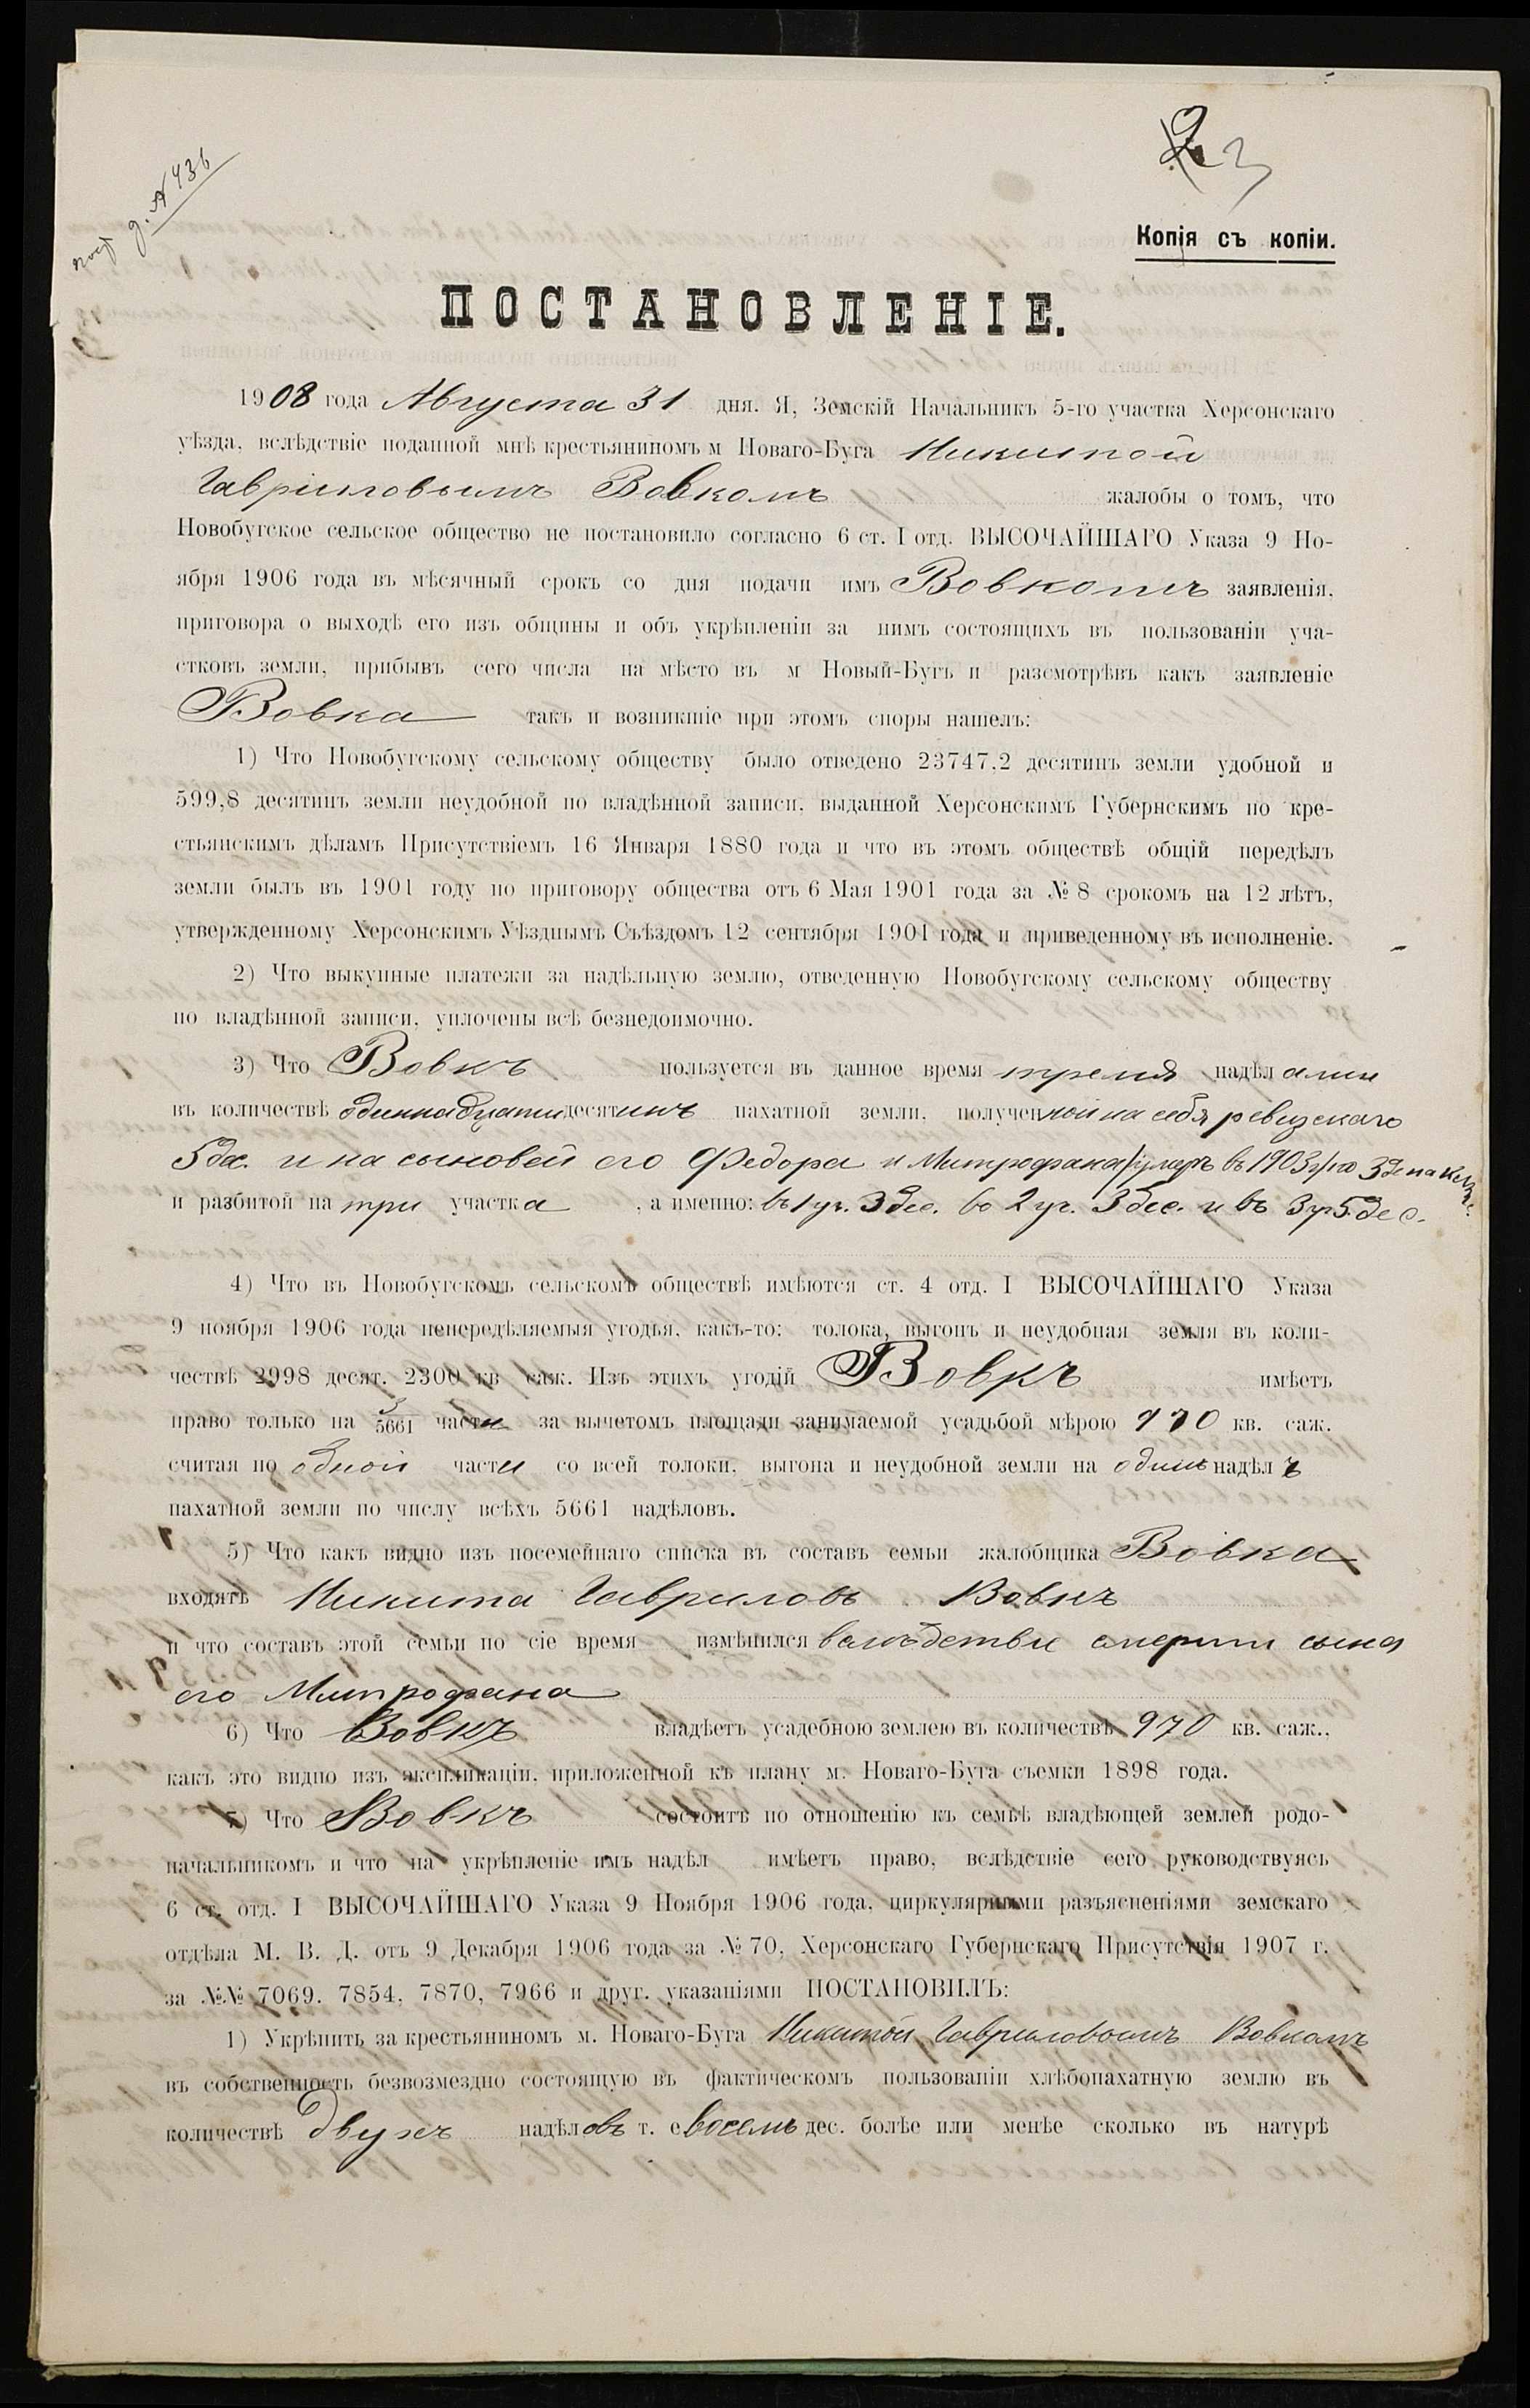 д. № 436
2 3
Копія съ копіи.
ПОСТАНОВЛЕНІЕ.
1908 года Августа 31 дня. Я, Земскій Начальникъ 5-го участка Херсонскаго
уѣзда, вслѣдствіе поданной мнѣ крестьяниномъ м Новаго-Буга Никитой
Гавриловымъ Вовкомъ жалобы о томъ, что
Новобугское сельское общество не постановило согласно 6 ст. I отд. ВЫСОЧАЙШАГО Указа 9 Но-
ября 1906 года въ мѣсячный срокъ со дня подачи имъ Вовкомъ заявленія,
приговора о выходѣ его изъ общины и объ укрѣпленіи за нимъ состоящихъ въ пользованіи уча-
стковъ земли, прибывъ сего числа на мѣсто въ м Новый-Бугъ и разсмотрѣвъ какъ заявленіе
Вовка такъ и возникшіе при этомъ споры нашелъ:
1) Что Новобугскому сельскому обществу было отведено 23747,2 десятинъ земли удобной и
599,8 десятинъ земли неудобной по владѣнной записи, выданной Херсонскимъ Губернскимъ по кре-
стьянскимъ дѣламъ Присутствіемъ 16 Января 1880 года и что въ этомъ обществѣ общій передѣлъ
земли былъ въ 1901 году по приговору общества отъ 6 Мая 1901 года за № 8 срокомъ на 12 лѣтъ,
утвержденному Херсонскимъ Уѣзднымъ Съѣздомъ 12 сентября 1901 года и приведенному въ исполненіе.
2) Что выкупные платежи за надѣльную землю, отведенную Новобугскому сельскому обществу
по владѣнной записи, уплочены всѣ безнедоимочно.
3) Что Вовкъ пользуется въ данное время тремя надѣлами
въ количествѣ одиннадцати десятинъ пахатной земли, полученной на себя ревизскаго
5 дес. и на сыновей его Федора и Митрофана /умеръ въ 1903 г/ по 3 де на кажд.
и разбитой на три участка , а именно: въ 1 уч. 3 дес. во 2 уч. 3 дес. и въ 3 уч 5 дес.
4) Что въ Новобугскомъ сельскомъ обществѣ имѣются ст. 4 отд. I ВЫСОЧАЙШАГО Указа
9 ноября 1906 года непередѣляемыя угодья, какъ-то: толока, выгонъ и неудобная земля въ коли-
чествѣ 2998 десят. 2300 кв саж. Изъ этихъ угодій Вовкъ имѣетъ
право только на 3/5661 части за вычетомъ площади занимаемой усадьбой мѣрою 970 кв. саж.
считая по одной части со всей толоки, выгона и неудобной земли на одинъ надѣлъ
пахатной земли по числу всѣхъ 5661 надѣловъ.
5) Что какъ видно изъ посемейнаго списка въ составъ семьи жалобщика Вовка
входятъ Никита Гавриловъ Вовкъ
и что составъ этой семьи по сіе время измѣнился вслѣдствіе смерти сына
его Митрофана
6) Что Вовкъ владѣетъ усадебною землею въ количествѣ 970 кв. саж.,
какъ это видно изъ экспликаціи, приложенной къ плану м. Новаго-Буга съемки 1898 года.
7) Что Вовкъ состоитъ по отношенію къ семьѣ владѣющей землей родо-
начальникомъ и что на укрѣпленіе имъ надѣл имѣетъ право, вслѣдствіе сего руководствуясь
6 ст. отд. I ВЫСОЧАЙШАГО Указа 9 Ноября 1906 года, циркулярными разъясненіями земскаго
отдѣла М. В. Д. отъ 9 Декабря 1906 года за № 70, Херсонскаго Губернскаго Присутствія 1907 г.
за №№ 7069. 7854, 7870, 7966 и друг. указаніями ПОСТАНОВИЛЪ:
1) Укрѣпить за крестьяниномъ м. Новаго-Буга Никитой Гавриловымъ Вовкомъ
въ собственность безвозмездно состоящую въ фактическомъ пользованіи хлѣбопахатную землю въ
количествѣ двухъ надѣловъ т. е восемь дес. болѣе или менѣе сколько въ натурѣ